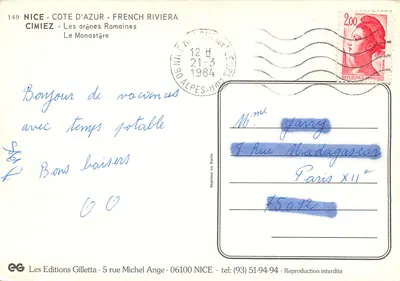 149 NICE - COTE D'AZUR - FRENCH RIVIERA
CIMIEZ - Les arènes Romaines
Le Monastère
12 H
21-3
1984
06 ALPES-MAR
2,00
Bonjour de vacances
avec temps potable
Bons baisers
Mme Jarry
7 Rue Madagascar
Paris XIIe
75012
Imprimé en Italie
Les Editions Gilletta - 5 rue Michel Ange - 06100 NICE - tel: (93) 51-94-94 - Reproduction interdite